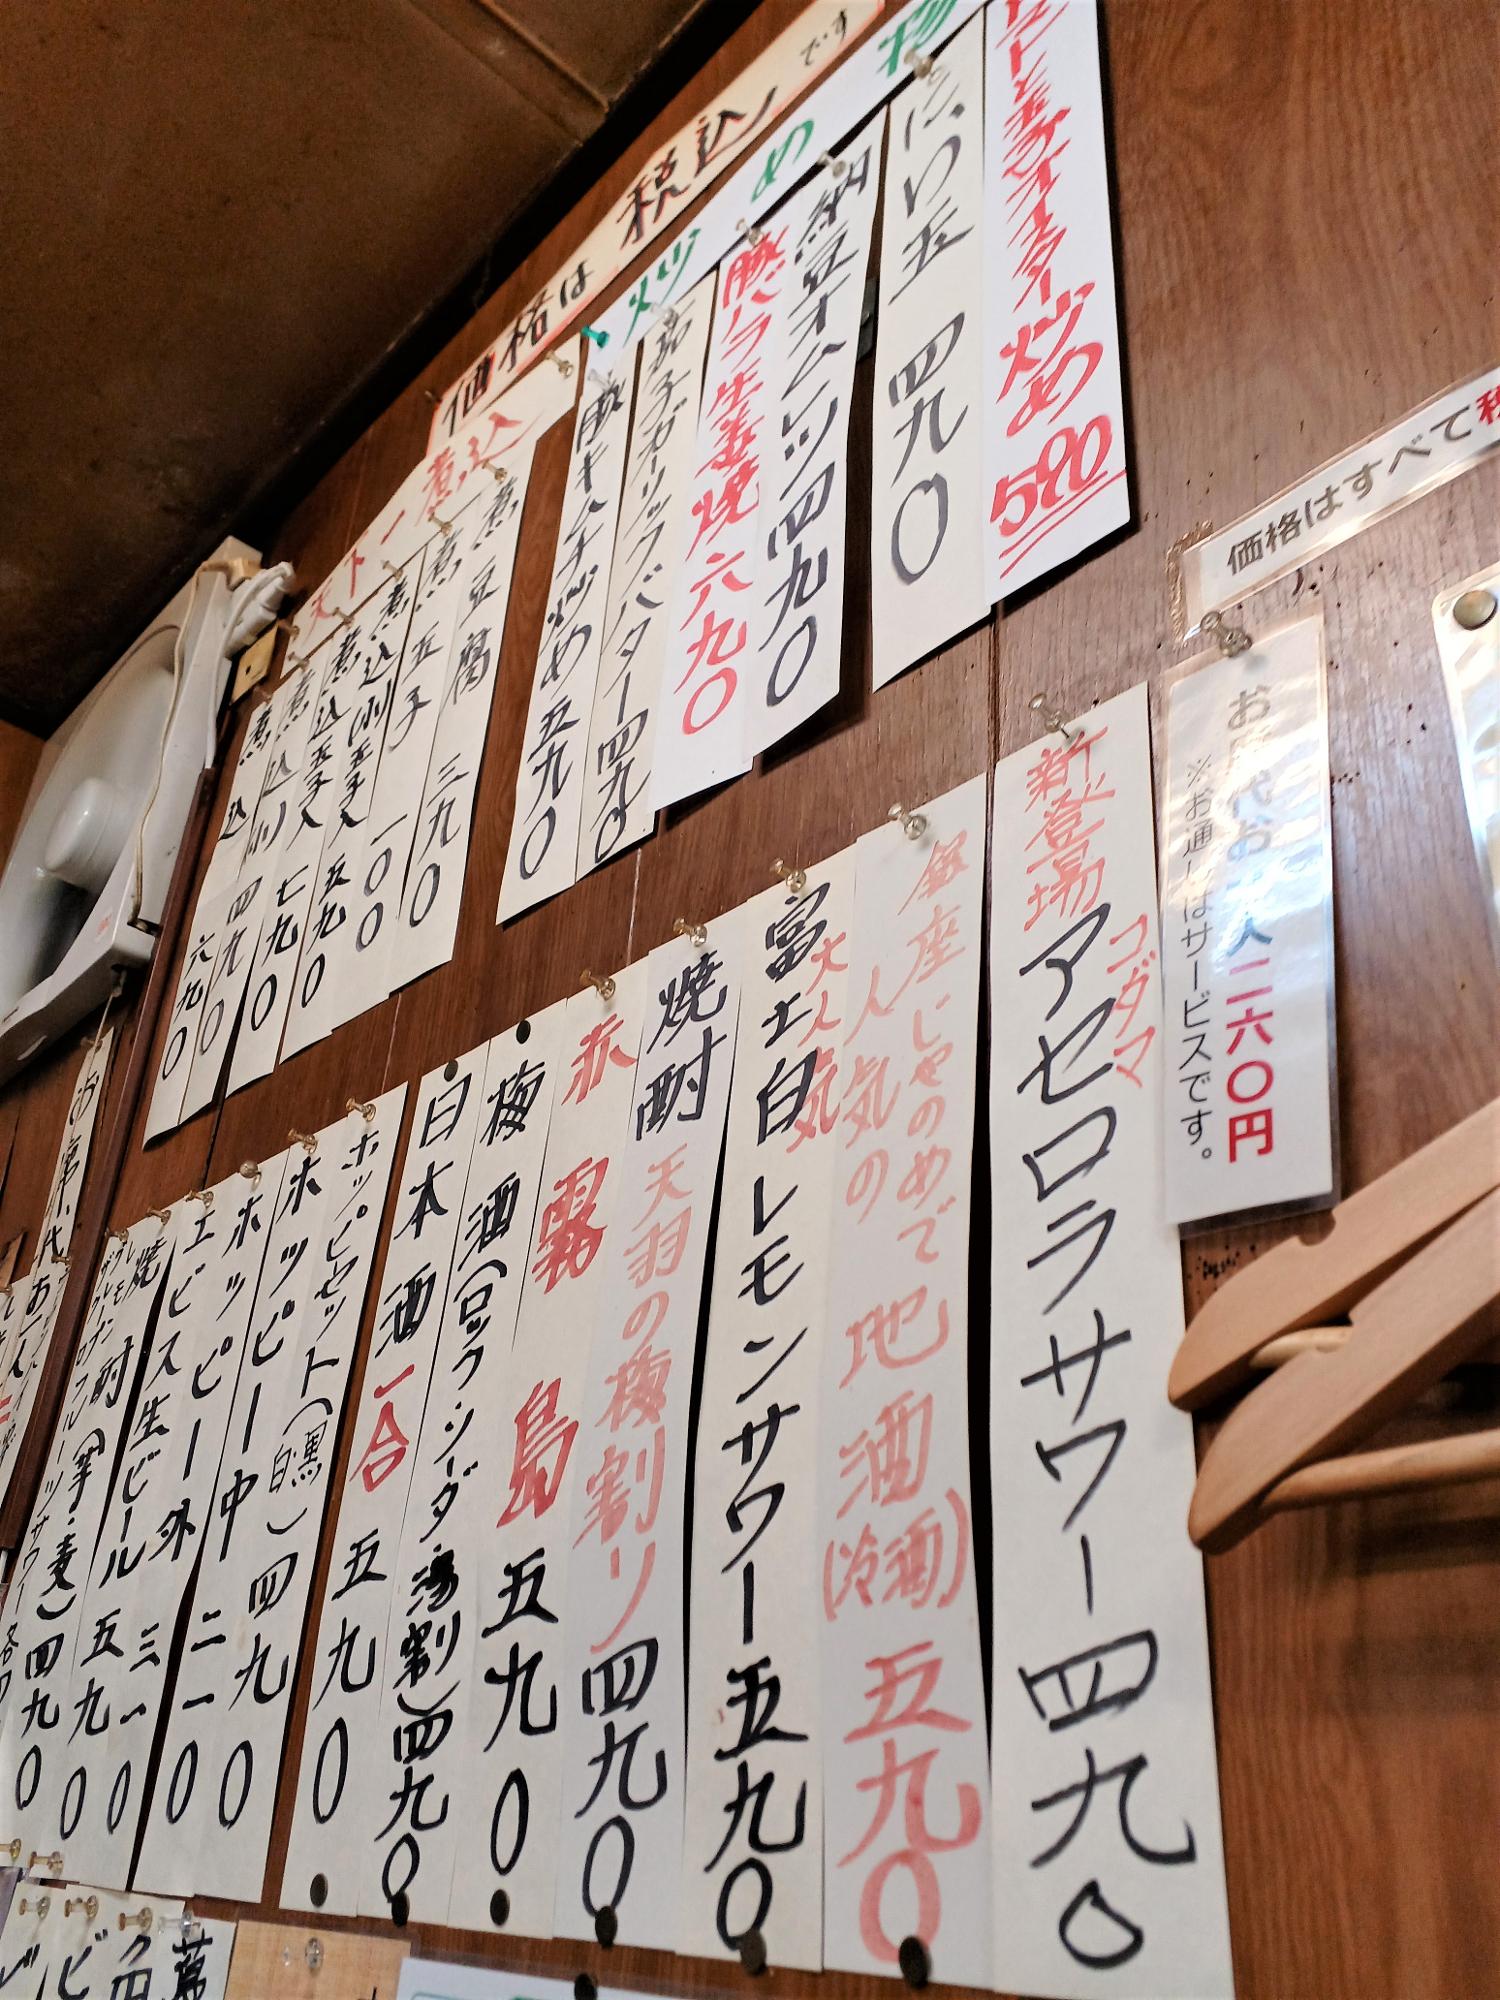 価格は 税込 です
炒め物
トマトと玉子オイスター炒め 590
にら玉 四九〇
納豆オムレツ 四九〇
豚バラ生姜焼 六九〇
茄子ガーリックバター 四九〇
豚キムチ炒め 五九〇
煮込
煮豆腐 三九〇
煮玉子 一〇〇
煮込(小)玉子入 五九〇
煮込玉子入 七九〇
煮込小 四九〇
煮込 六九〇
価格はすべて税
お席代お一人二六〇円
※お通しはサービスです。
新登場 コダマ
アセロラサワー 四九〇
銀座じゃのめで
人気の地酒(冷酒) 五九〇
大人気
富士白レモンサワー 五九〇
焼酎 天羽の梅割り 四九〇
赤霧島 五九〇
梅酒(ロック・ソーダ・湯割) 四九〇
日本酒 一合 五九〇
ホッピーセット(黒・白) 四九〇
ホッピー中 二一〇
ホッピー外 三一〇
エビス生ビール 五九〇
焼酎(芋・麦) 四九〇